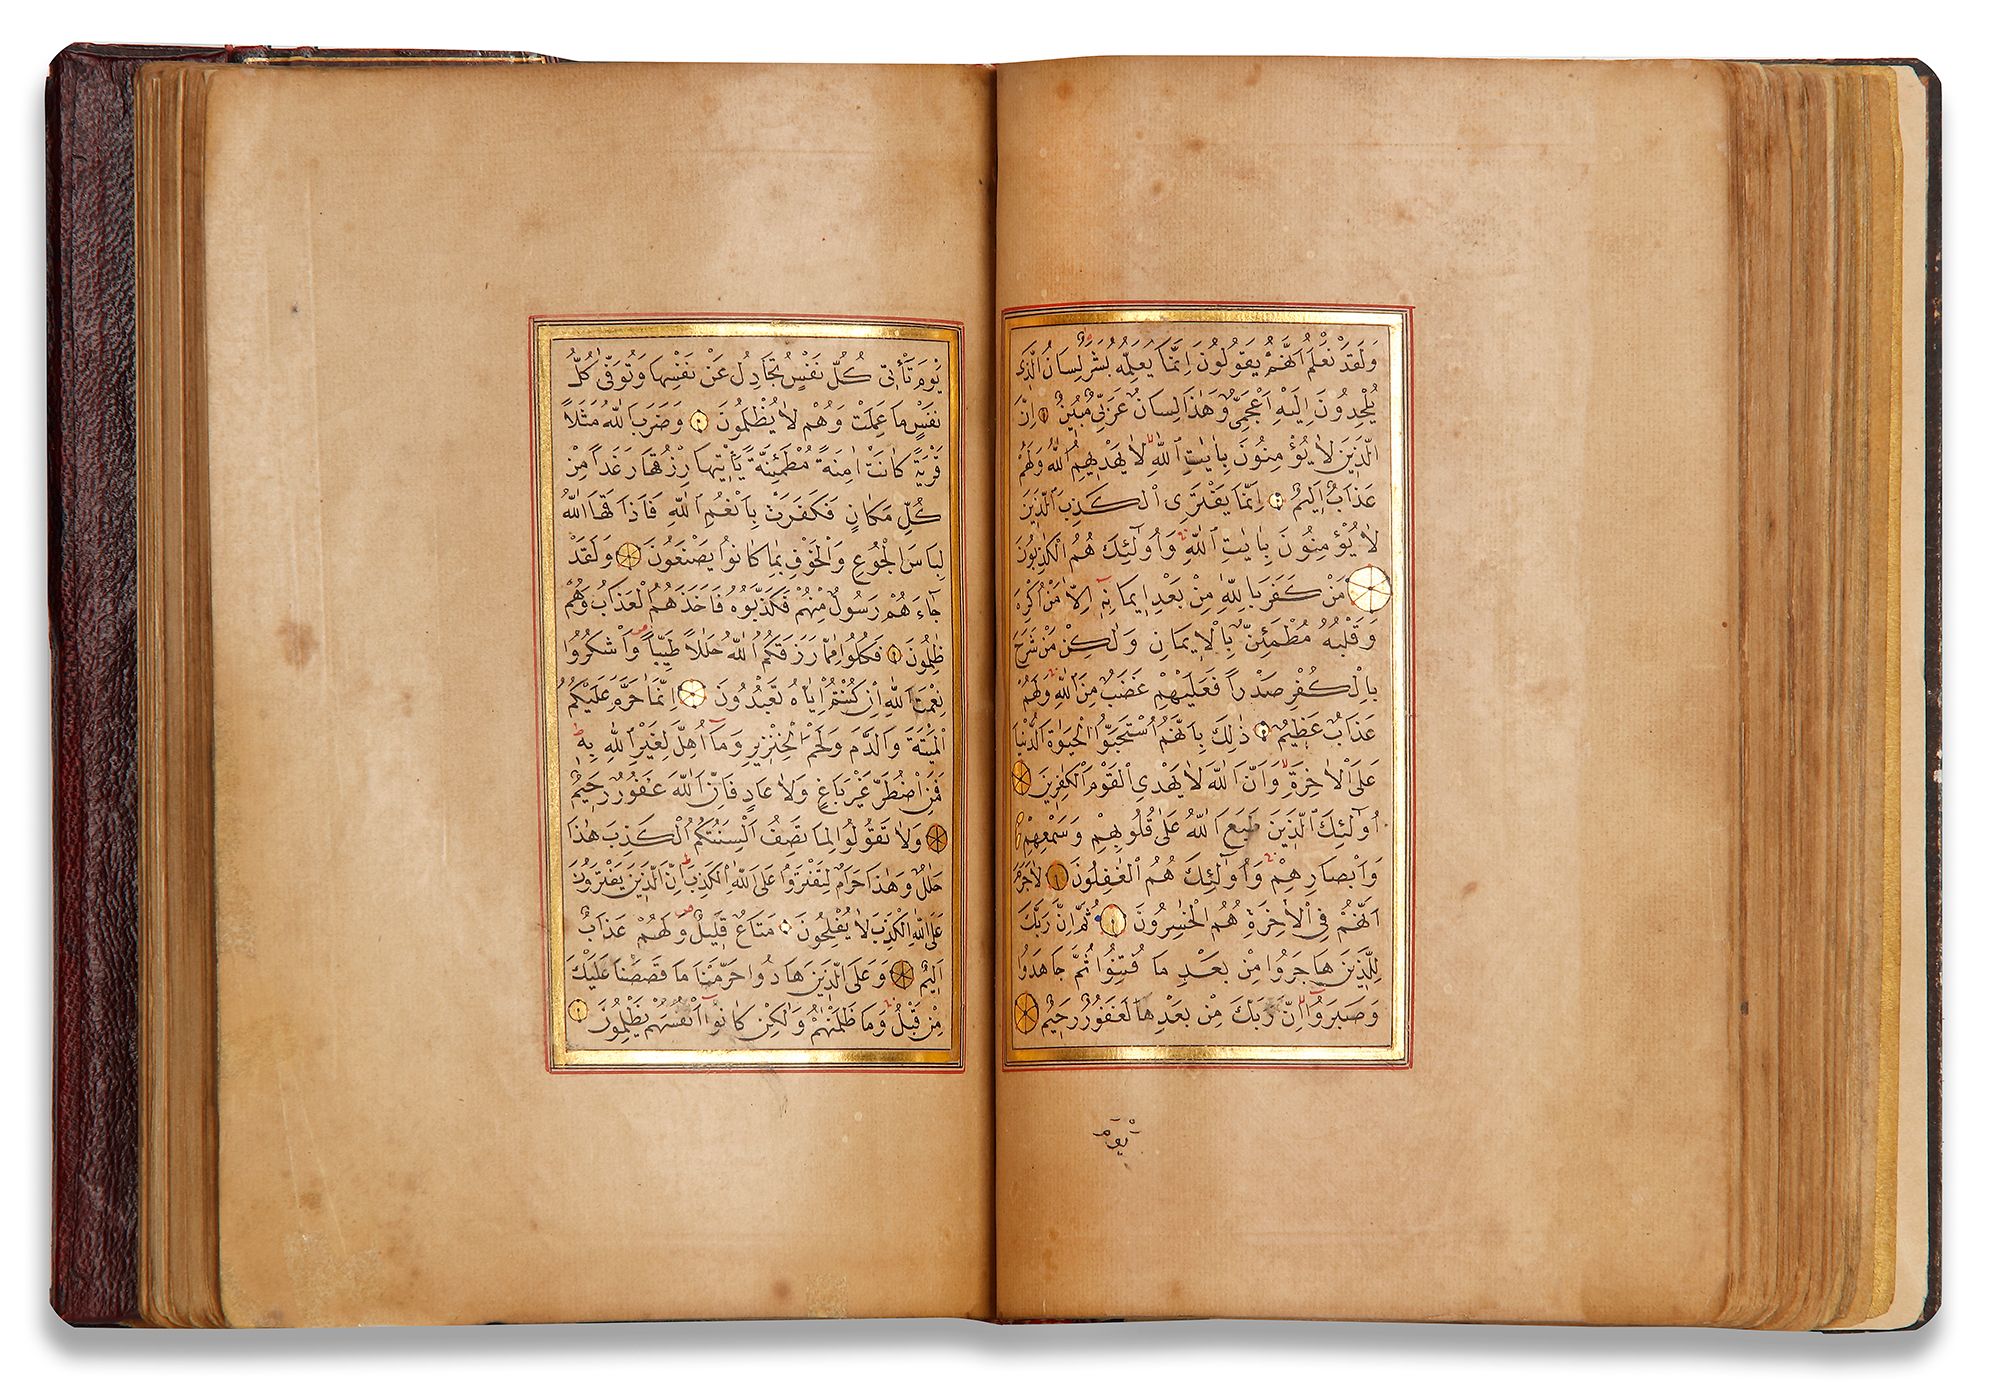 وَلَقَدْ نَعْلَمُ اَنَّهُمْ يَقُولُونَ اِنَّمَا يُعَلِّمُهُ بَشَرٌ لِسَانُ الَّذٖى
يُلْحِدُونَ اِلَيْهِ اَعْجَمِىٌّ وَهٰذَا لِسَانٌ عَرَبِىٌّ مُبٖينٌ اِنَّ
الَّذٖينَ لَا يُؤْمِنُونَ بِاٰيَاتِ اللّٰهِ لَا يَهْدٖيهِمُ اللّٰهُ وَلَهُمْ
عَذَابٌ اَلٖيمٌ اِنَّمَا يَفْتَرِى الْكَذِبَ الَّذٖينَ
لَا يُؤْمِنُونَ بِاٰيَاتِ اللّٰهِ وَاُولٰئِكَ هُمُ الْكَاذِبُونَ
مَنْ كَفَرَ بِاللّٰهِ مِنْ بَعْدِ اٖيمَانِهٖ اِلَّا مَنْ اُكْرِهَ
وَقَلْبُهُ مُطْمَئِنٌّ بِالْاٖيمَانِ وَلٰكِنْ مَنْ شَرَحَ
بِالْكُفْرِ صَدْرًا فَعَلَيْهِمْ غَضَبٌ مِنَ اللّٰهِ وَلَهُمْ
عَذَابٌ عَظٖيمٌ ذٰلِكَ بِاَنَّهُمُ اسْتَحَبُّوا الْحَيٰوةَ الدُّنْيَا
عَلَى الْاٰخِرَةِ وَاَنَّ اللّٰهَ لَا يَهْدِى الْقَوْمَ الْكَافِرٖينَ
اُولٰئِكَ الَّذٖينَ طَبَعَ اللّٰهُ عَلٰى قُلُوبِهِمْ وَسَمْعِهِمْ
وَاَبْصَارِهِمْ وَاُولٰئِكَ هُمُ الْغَافِلُونَ لَا جَرَمَ
اَنَّهُمْ فِى الْاٰخِرَةِ هُمُ الْخَاسِرُونَ ثُمَّ اِنَّ رَبَّكَ
لِلَّذٖينَ هَاجَرُوا مِنْ بَعْدِ مَا فُتِنُوا ثُمَّ جَاهَدُوا
وَصَبَرُوا اِنَّ رَبَّكَ مِنْ بَعْدِهَا لَغَفُورٌ رَحٖيمٌ
يَوْمَ
يَوْمَ تَاْتٖى كُلُّ نَفْسٍ تُجَادِلُ عَنْ نَفْسِهَا وَتُوَفّٰى كُلُّ
نَفْسٍ مَا عَمِلَتْ وَهُمْ لَا يُظْلَمُونَ وَضَرَبَ اللّٰهُ مَثَلًا
قَرْيَةً كَانَتْ اٰمِنَةً مُطْمَئِنَّةً يَاْتٖيهَا رِزْقُهَا رَغَدًا مِنْ
كُلِّ مَكَانٍ فَكَفَرَتْ بِاَنْعُمِ اللّٰهِ فَاَذَاقَهَا اللّٰهُ
لِبَاسَ الْجُوعِ وَالْخَوْفِ بِمَا كَانُوا يَصْنَعُونَ وَلَقَدْ
جَاءَهُمْ رَسُولٌ مِنْهُمْ فَكَذَّبُوهُ فَاَخَذَهُمُ الْعَذَابُ وَهُمْ
ظَالِمُونَ فَكُلُوا مِمَّا رَزَقَكُمُ اللّٰهُ حَلَالًا طَيِّبًا وَاشْكُرُوا
نِعْمَتَ اللّٰهِ اِنْ كُنْتُمْ اِيَّاهُ تَعْبُدُونَ اِنَّمَا حَرَّمَ عَلَيْكُمُ
الْمَيْتَةَ وَالدَّمَ وَلَحْمَ الْخِنْزٖيرِ وَمَا اُهِلَّ لِغَيْرِ اللّٰهِ بِهٖ
فَمَنِ اضْطُرَّ غَيْرَ بَاغٍ وَلَا عَادٍ فَاِنَّ اللّٰهَ غَفُورٌ رَحٖيمٌ
وَلَا تَقُولُوا لِمَا تَصِفُ اَلْسِنَتُكُمُ الْكَذِبَ هٰذَا
حَلَالٌ وَهٰذَا حَرَامٌ لِتَفْتَرُوا عَلَى اللّٰهِ الْكَذِبَ اِنَّ الَّذٖينَ يَفْتَرُونَ
عَلَى اللّٰهِ الْكَذِبَ لَا يُفْلِحُونَ مَتَاعٌ قَلٖيلٌ وَلَهُمْ عَذَابٌ
اَلٖيمٌ وَعَلَى الَّذٖينَ هَادُوا حَرَّمْنَا مَا قَصَصْنَا عَلَيْكَ
مِنْ قَبْلُ وَمَا ظَلَمْنَاهُمْ وَلٰكِنْ كَانُوا اَنْفُسَهُمْ يَظْلِمُونَ